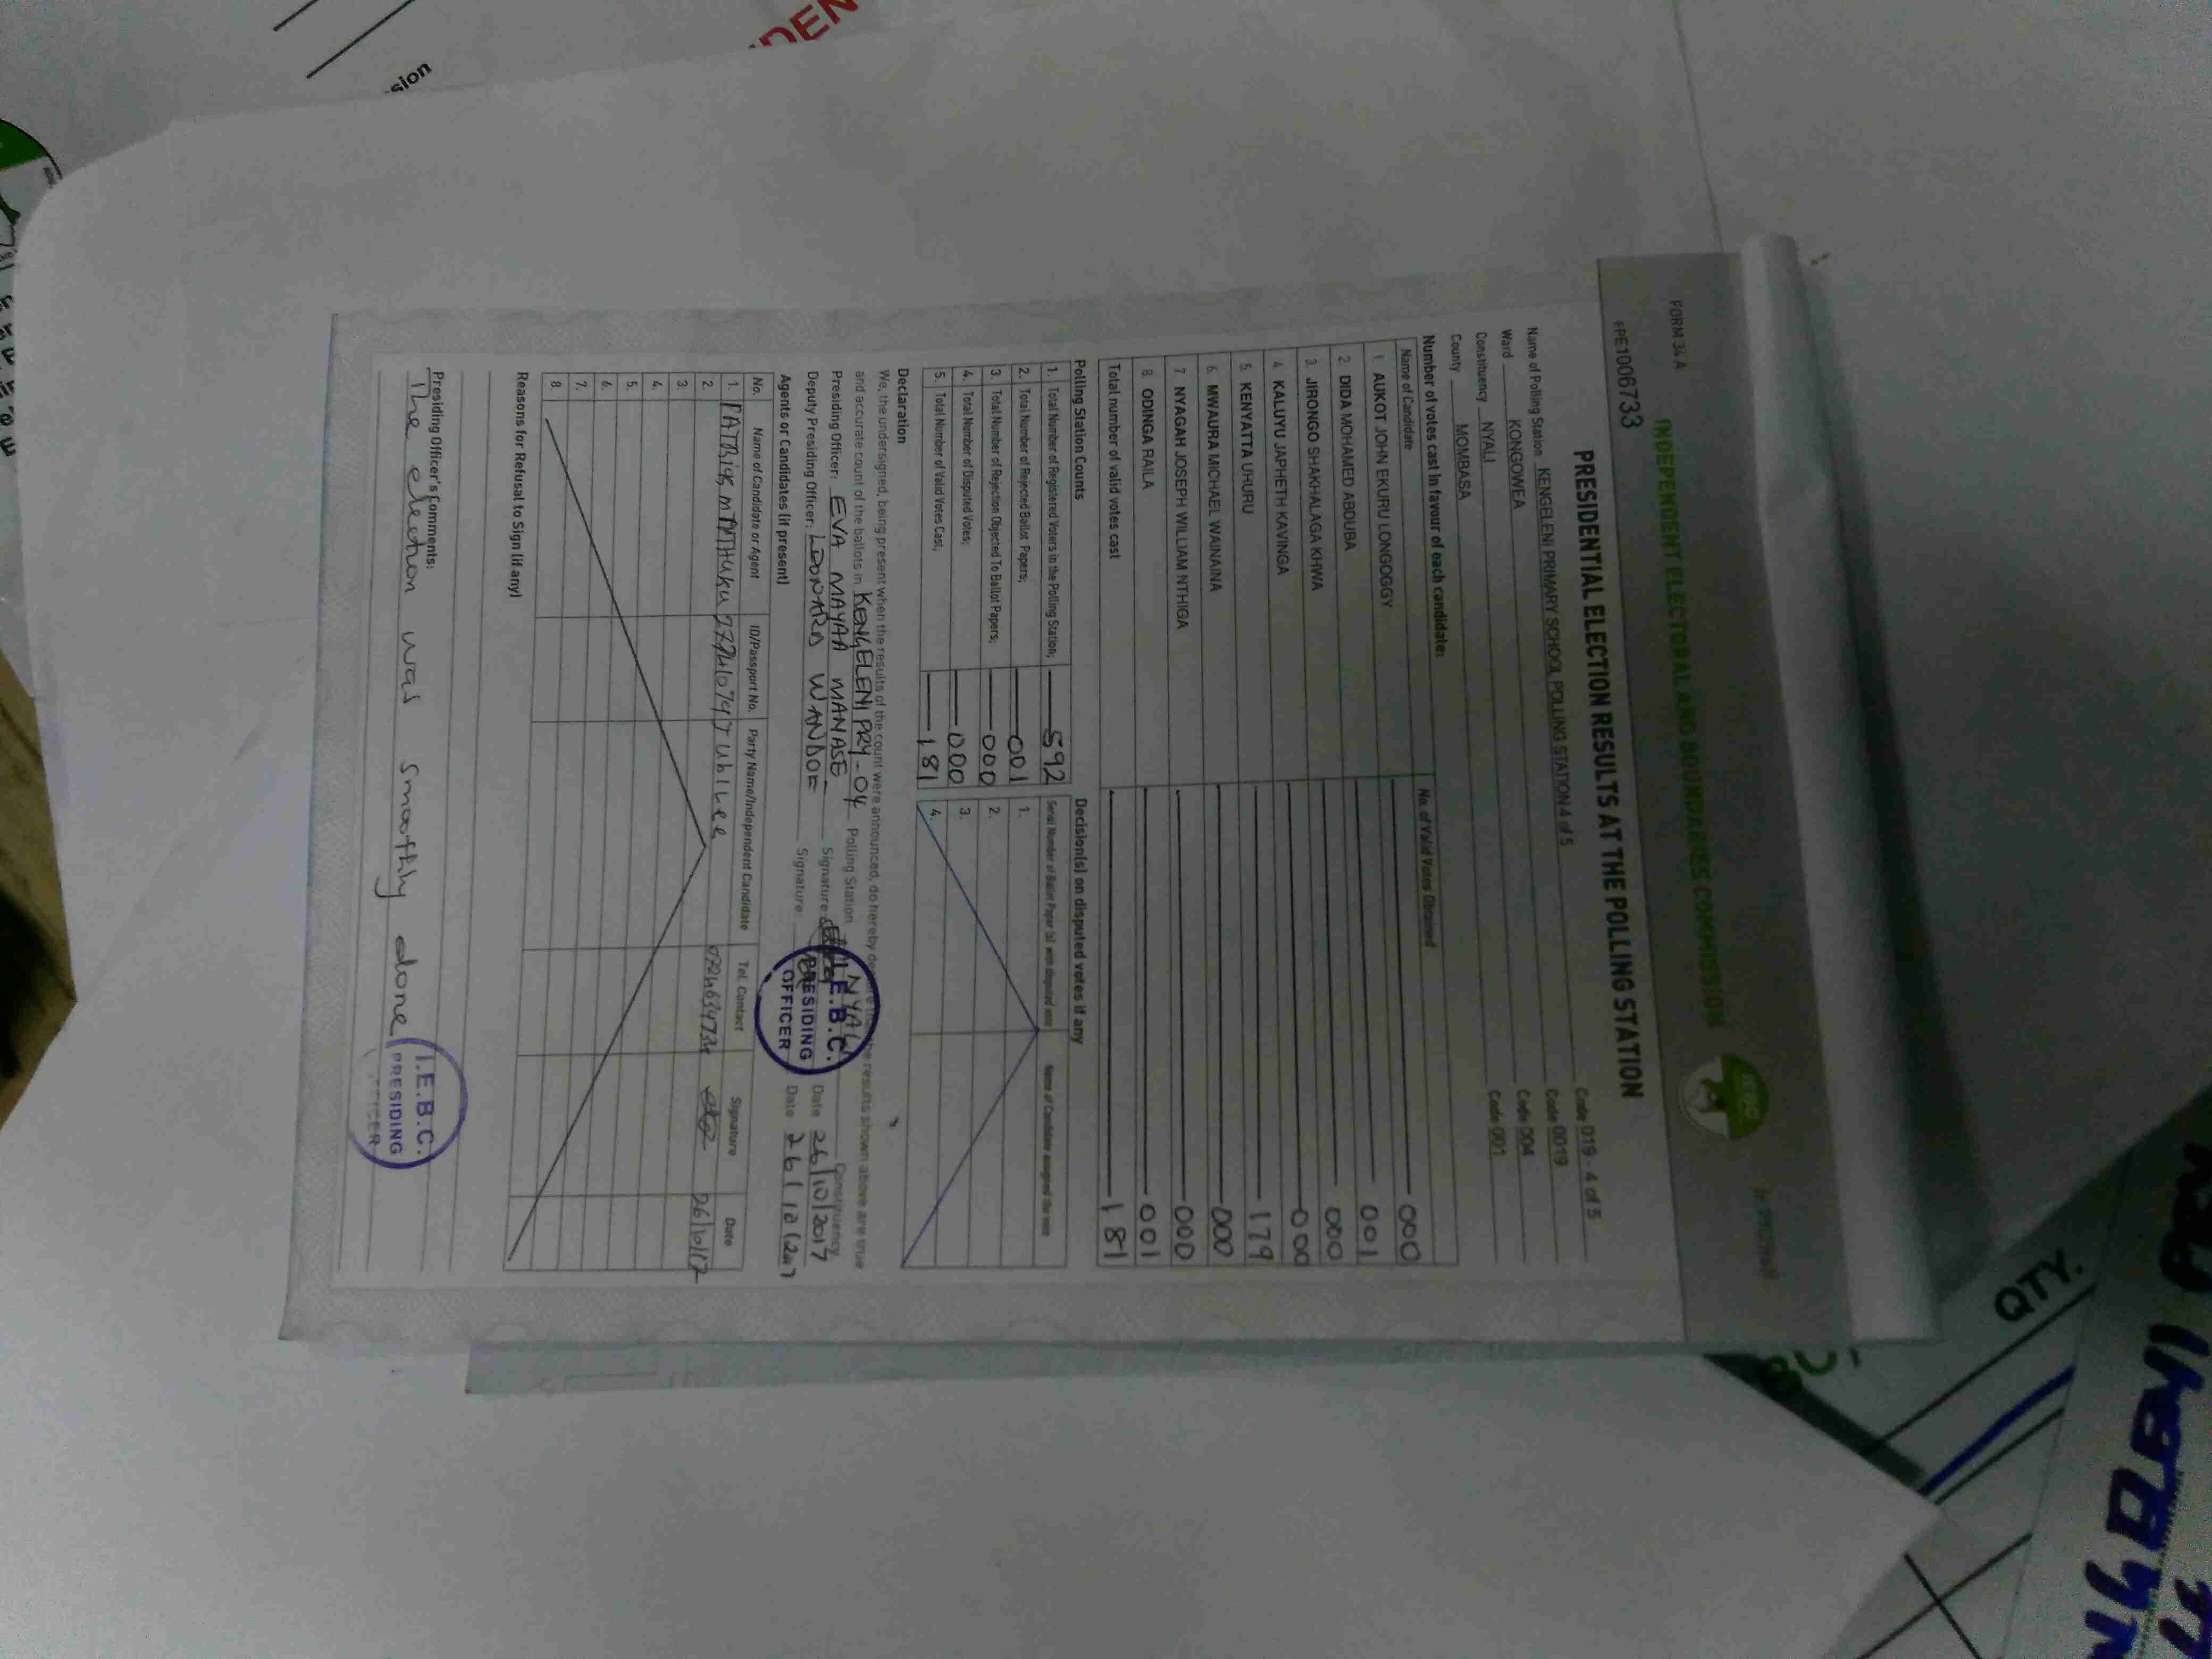 FORM 34 A
INDEPENDENT ELECTORAL AND BOUNDARIES COMMISSION
IEBC
PRE1006733
PRESIDENTIAL ELECTION RESULTS AT THE POLLING STATION
Name of Polling Station KENGELENI PRIMARY SCHOOL POLLING STATION 4 of 5 Code 019 - 4 of 5
Ward KONGOWEA Code 0019
Constituency NYALI Code 004
County MOMBASA Code 001
Number of votes cast in favour of each candidate:
Name of Candidate No. of Valid Votes Obtained
1. AUKOT JOHN EKURU LONGOGGY 000
2. DIDA MOHAMED ABDUBA 001
3. JIRONGO SHAKHALAGA KHWA 000
4. KALUYU JAPHETH KAVINGA 000
5. KENYATTA UHURU 179
6. MWAURA MICHAEL WAINAINA 000
7. NYAGAH JOSEPH WILLIAM NTHIGA 000
8. ODINGA RAILA 001
Total number of valid votes cast 181
Polling Station Counts
1. Total Number of Registered Voters in the Polling Station; 592
2. Total Number of Rejected Ballot Papers; 001
3. Total Number of Rejection Objected To Ballot Papers; 000
4. Total Number of Disputed Votes; 000
5. Total Number of Valid Votes Cast; 181
Decision(s) on disputed votes if any
Serial Number of Ballot Paper (s) with disputed vote Name of Candidate assigned the vote
1.
2.
3.
4.
Declaration
We, the undersigned, being present when the results of the count were announced, do hereby the results shown above are true
and accurate count of the ballots in KENGELENI PRY - 04 Polling Station NYALI Constituency
Presiding Officer: EVA MAYAA MANASE Signature Date 26/10/2017
Deputy Presiding Officer: LEONARD WANDOE Signature: Date 26/10/2017
I.E.B.C.
PRESIDING
OFFICER
Agents or Candidates (if present)
No. Name of Candidate or Agent ID/Passport No. Party Name/Independent Candidate Tel. Contact Signature Date
1. Jubilee 26/10/17
2.
3.
4.
5.
6.
7.
8.
Reasons for Refusal to Sign (if any)
Presiding Officer's Comments:
The election was smoothly done
I.E.B.C.
PRESIDING
OFFICER
QTY.
sion